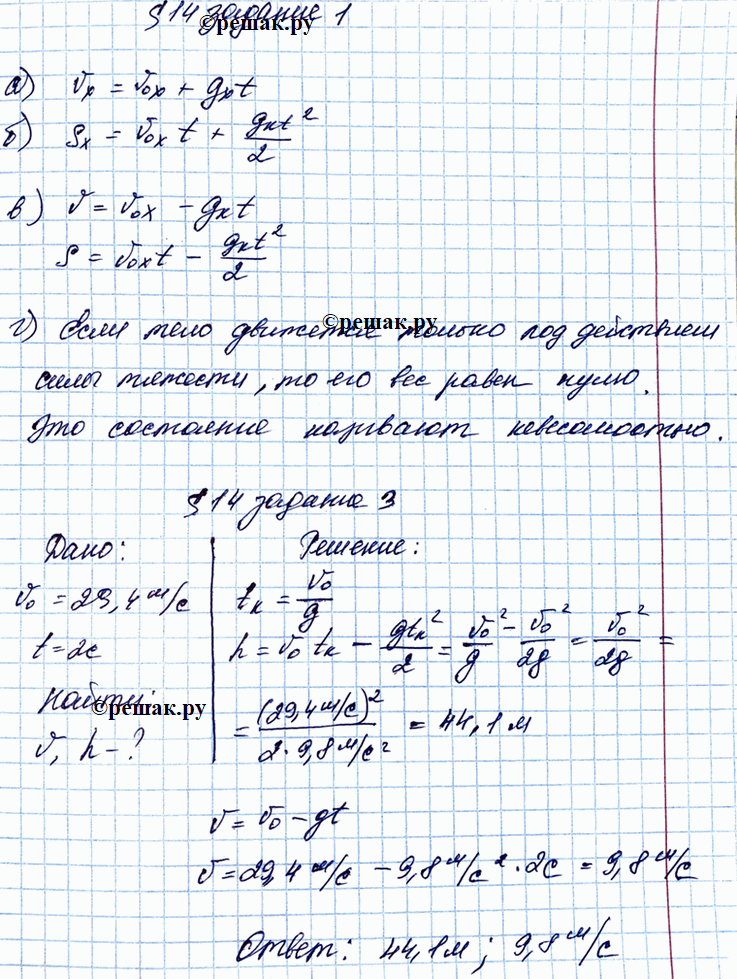 § 14 задание 1
©решак.ру
а) vₓ = v₀ₓ + gₓt
б) sₓ = v₀ₓ t + gₓt²/2
в) v = v₀ₓ - gₓt
s = v₀ₓt - gₓt²/2
©решак.ру
г) Если тело движется только под действием
силы тяжести, то его вес равен нулю.
Это состояние называют невесомостью.
§ 14 задание 3
Дано:
v₀ = 29,4 м/с
t = 2с
Найти:
©решак.ру
v, h - ?
Решение:
tₖ = v₀/g
h = v₀ tₖ - gtₖ²/2 = v₀²/g - v₀²/2g = v₀²/2g =
= (29,4 м/с)²/2·9,8 м/с² = 44,1 м
v = v₀ - gt
v = 29,4 м/с - 9,8 м/с² · 2с = 9,8 м/с
Ответ: 44,1 м; 9,8 м/с